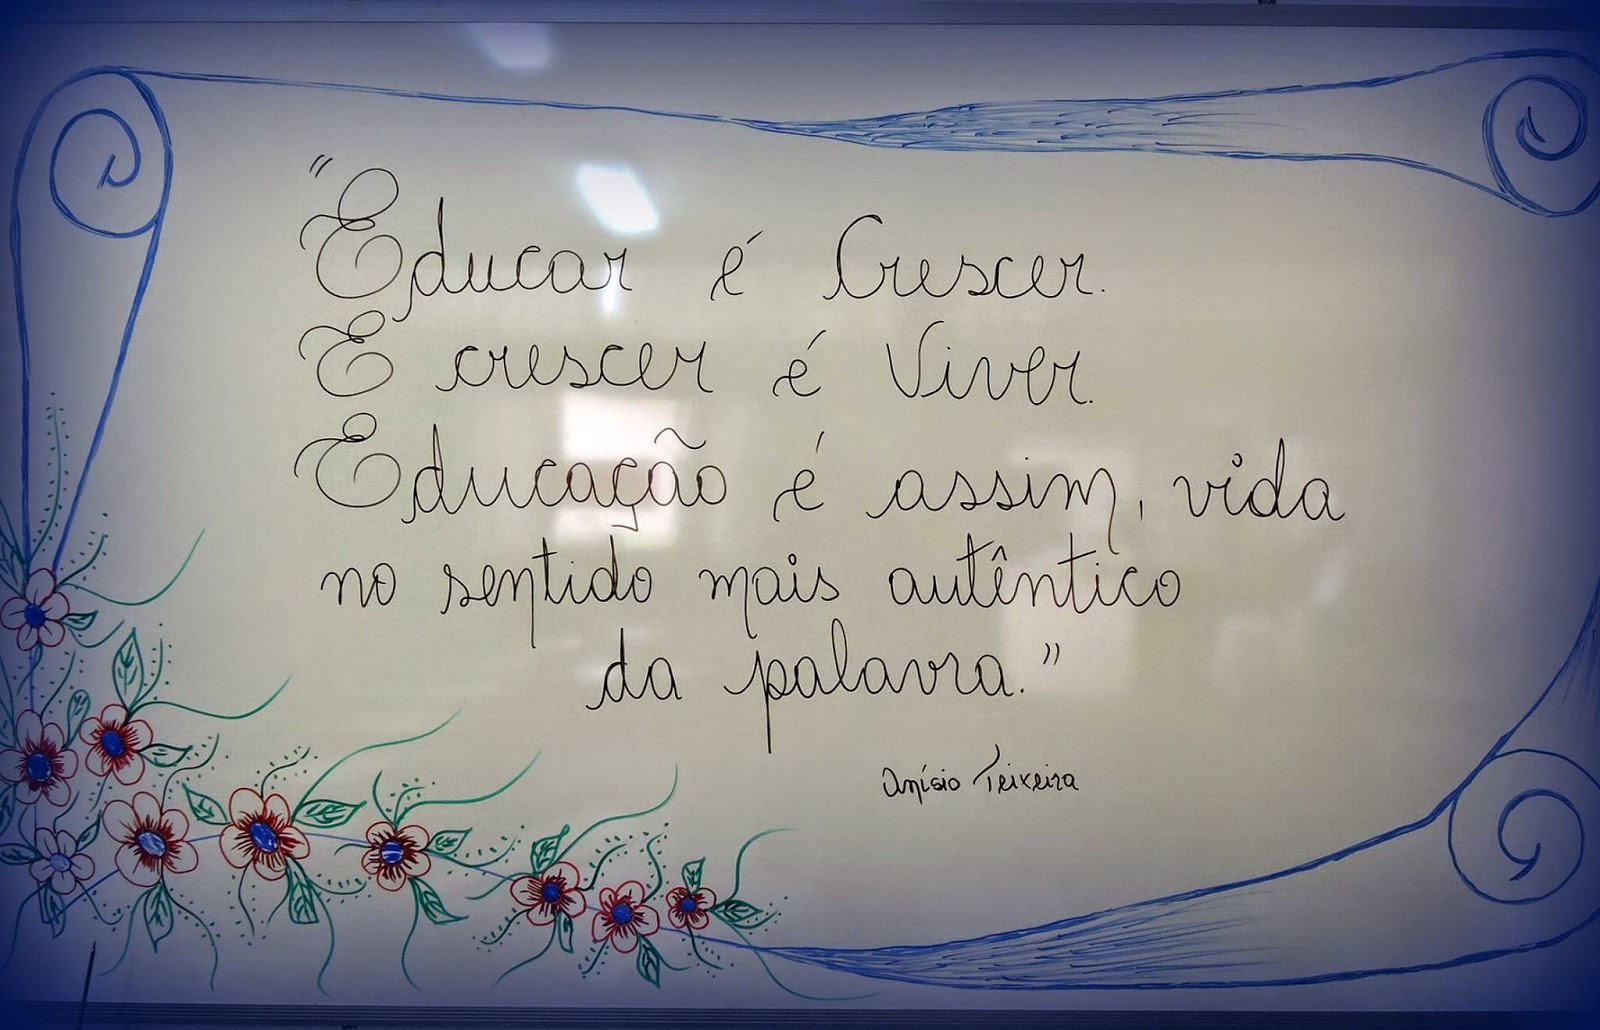 "Educar é Crescer.
E crescer é Viver.
Educação é assim, vida
no sentido mais autêntico
da palavra."
Anísio Teixeira